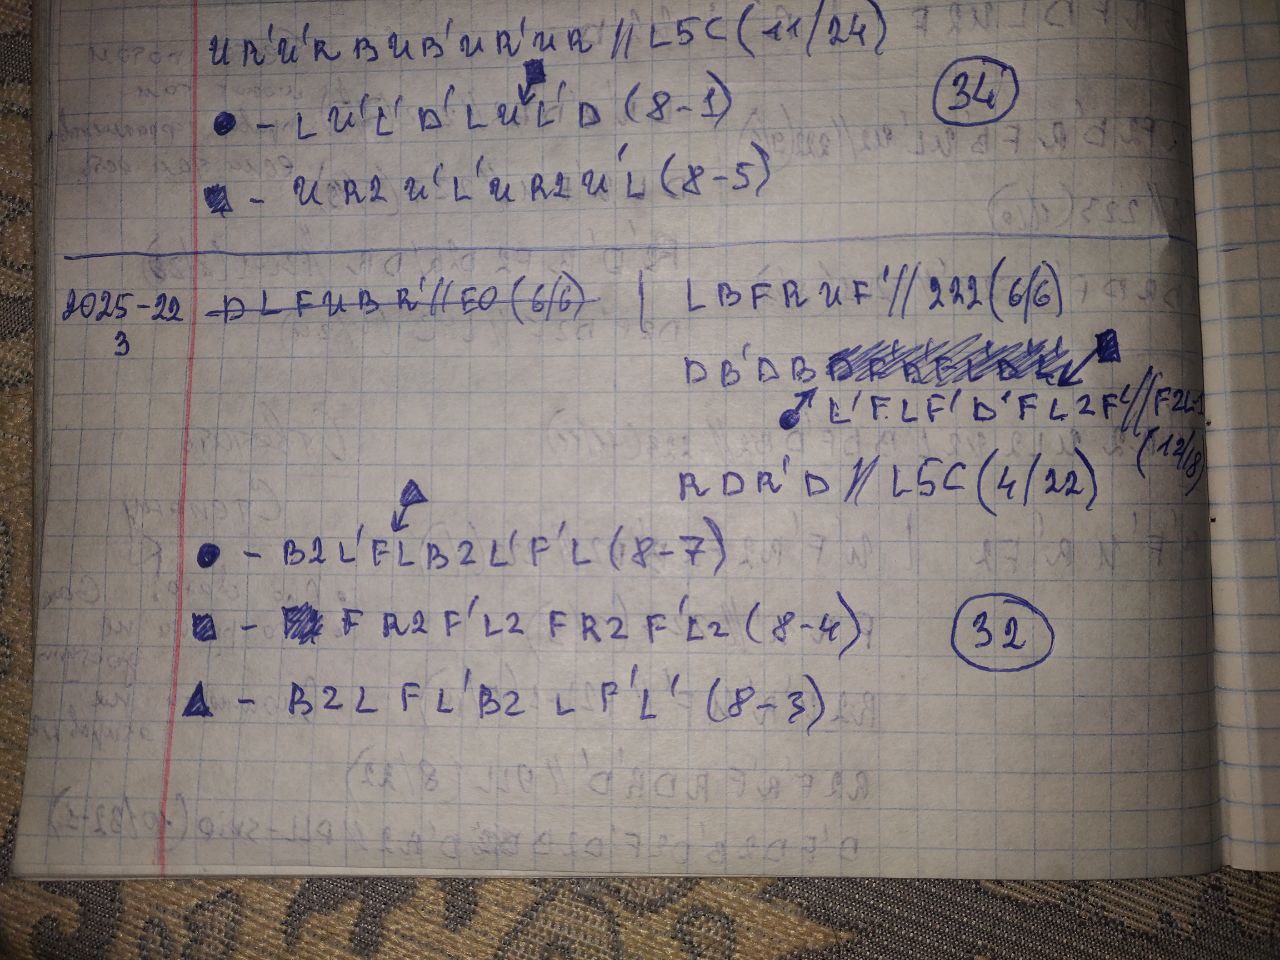 U R' U' R B U B' U R' U R' // L5C (11/24)
● - L U' L' D' L U L' D (8-1)
34
■ - U R2 U' L' U R2 U' L (8-5)
2025-22 D L F U B R' // EO (6/6) | L B F R U F' // 222 (6/6)
3
D B' D B
L' F L F' D' F L2 F' // F2L-1
(12/18)
R D R' D // L5C (4/22)
● - B2 L' F L B2 L' F' L (8-7)
■ - F R2 F' L2 F R2 F' L2 (8-4)
32
▲ - B2 L F L' B2 L F' L' (8-3)